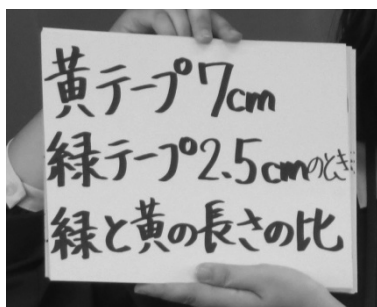 黄テープ7cm
緑テープ2.5cmのとき
緑と黄の長さの比